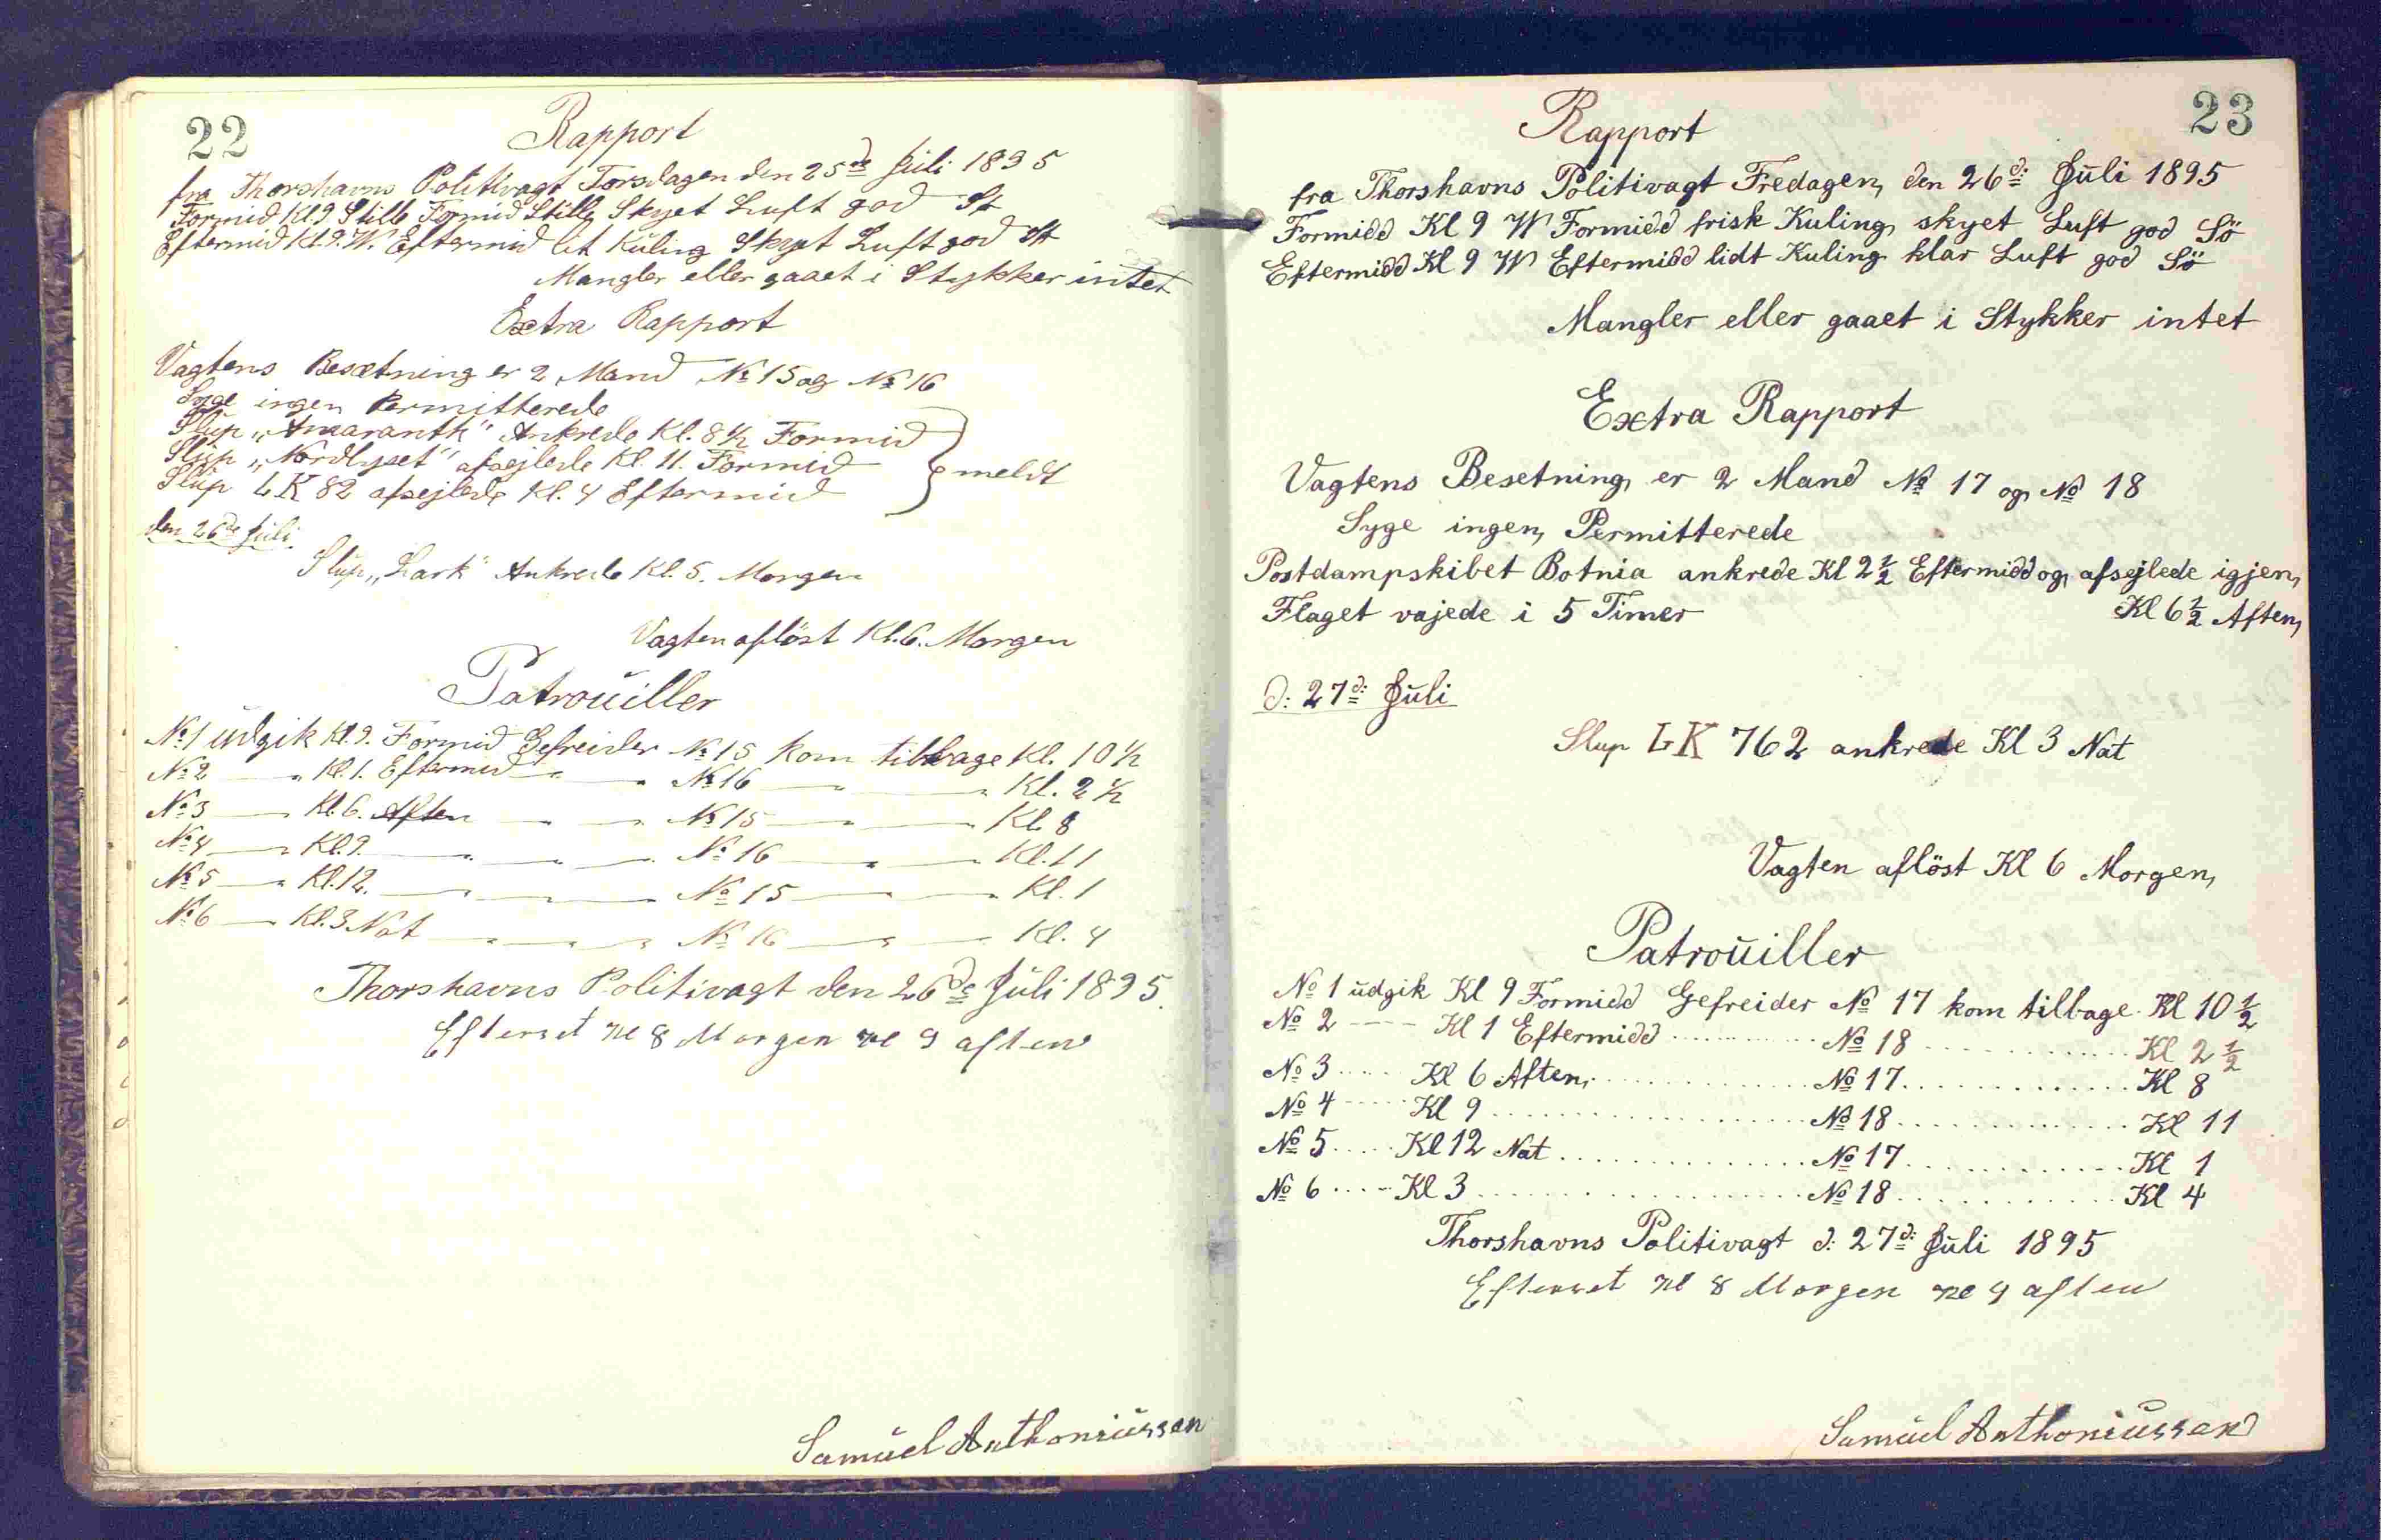 22
Rapport
fra Thorshavns Politivagt Torsdagen den 25de Juli 1895
Formid Kl. 9 Stille Formid Stille Skyet Luft god Sö
Eftermid Kl. 9. W. Eftermid lit Kuling Skyet Luft god Sö
Mangler eller gaaet i Stykker intet
Extra Rapport
Vagtens Besætning er 2 Mand No 15 og No 16
Syge ingen Permitterede
Slup „Amaranth" Ankrede Kl. 8 1/2 Formid
Slup „Nordlyset" afsejlede Kl. 11. Formid
meldt
Slup LK 82 afsejlede Kl. 4 Eftermid
den 26de Juli
Slup „Lark" Ankrede Kl. 5. Morgen
Vagten aflöst Kl. 6. Morgen
Patrouiller
No 1 udgik Kl. 9. Formid Gefreider No 15 kom tilbage Kl. 10 1/2
No 2 — " Kl. 1. Eftermid — " — No 16 — " — Kl. 2 1/2
No 3 — " Kl. 6. Aften — " — No 15 — " — Kl. 8
No 4 — " Kl. 9. — " — No 16 — " — Kl. 11
No 5 — " Kl. 12. — " — No 15 — " — Kl. 1
No 6 — " Kl. 3 Nat — " — No 16 — " — Kl. 4
Thorshavns Politivagt den 26de Juli 1895.
Efterset Kl 8 Morgen Kl 9 aften
Samuel Anthoniussen
23
Rapport
fra Thorshavns Politivagt Fredagen, den 26d: Juli 1895
Formidd Kl 9 W Formidd frisk Kuling, skyet Luft god Sö
Eftermidd Kl 9 W Eftermidd lidt Kuling klar Luft god Sö
Mangler eller gaaet i Stykker intet
Extra Rapport
Vagtens Besetning, er 2 Mand No 17 og No 18
Syge ingen, Permitterede
Postdampskibet Botnia ankrede Kl 2 1/2 Eftermidd og, afsejlede igjen,
Flaget vajede i 5 Timer Kl 6 1/2 Aften,
d: 27d: Juli
Slup LK 762 ankrede Kl 3 Nat
Vagten aflöst Kl 6 Morgen,
Patrouiller
No 1 udgik Kl 9 Formidd Gefreider No 17 kom tilbage Kl 10 1/2
No 2 ---- Kl 1 Eftermidd ............ No 18 ............ Kl 2 1/2
No 3 ..... Kl 6 Aften, ............ No 17 ............ Kl 8
No 4 ..... Kl 9 ............ No 18 ............ Kl 11
No 5 ..... Kl 12 Nat ............ No 17 ............ Kl 1
No 6 ..... Kl 3 ............ No 18 ............ Kl 4
Thorshavns Politivagt d: 27d: Juli 1895
Efterset Kl 8 Morgen Kl 9 aften
Samuel Anthoniussen